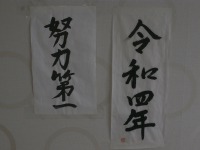 令和四年
努力第一